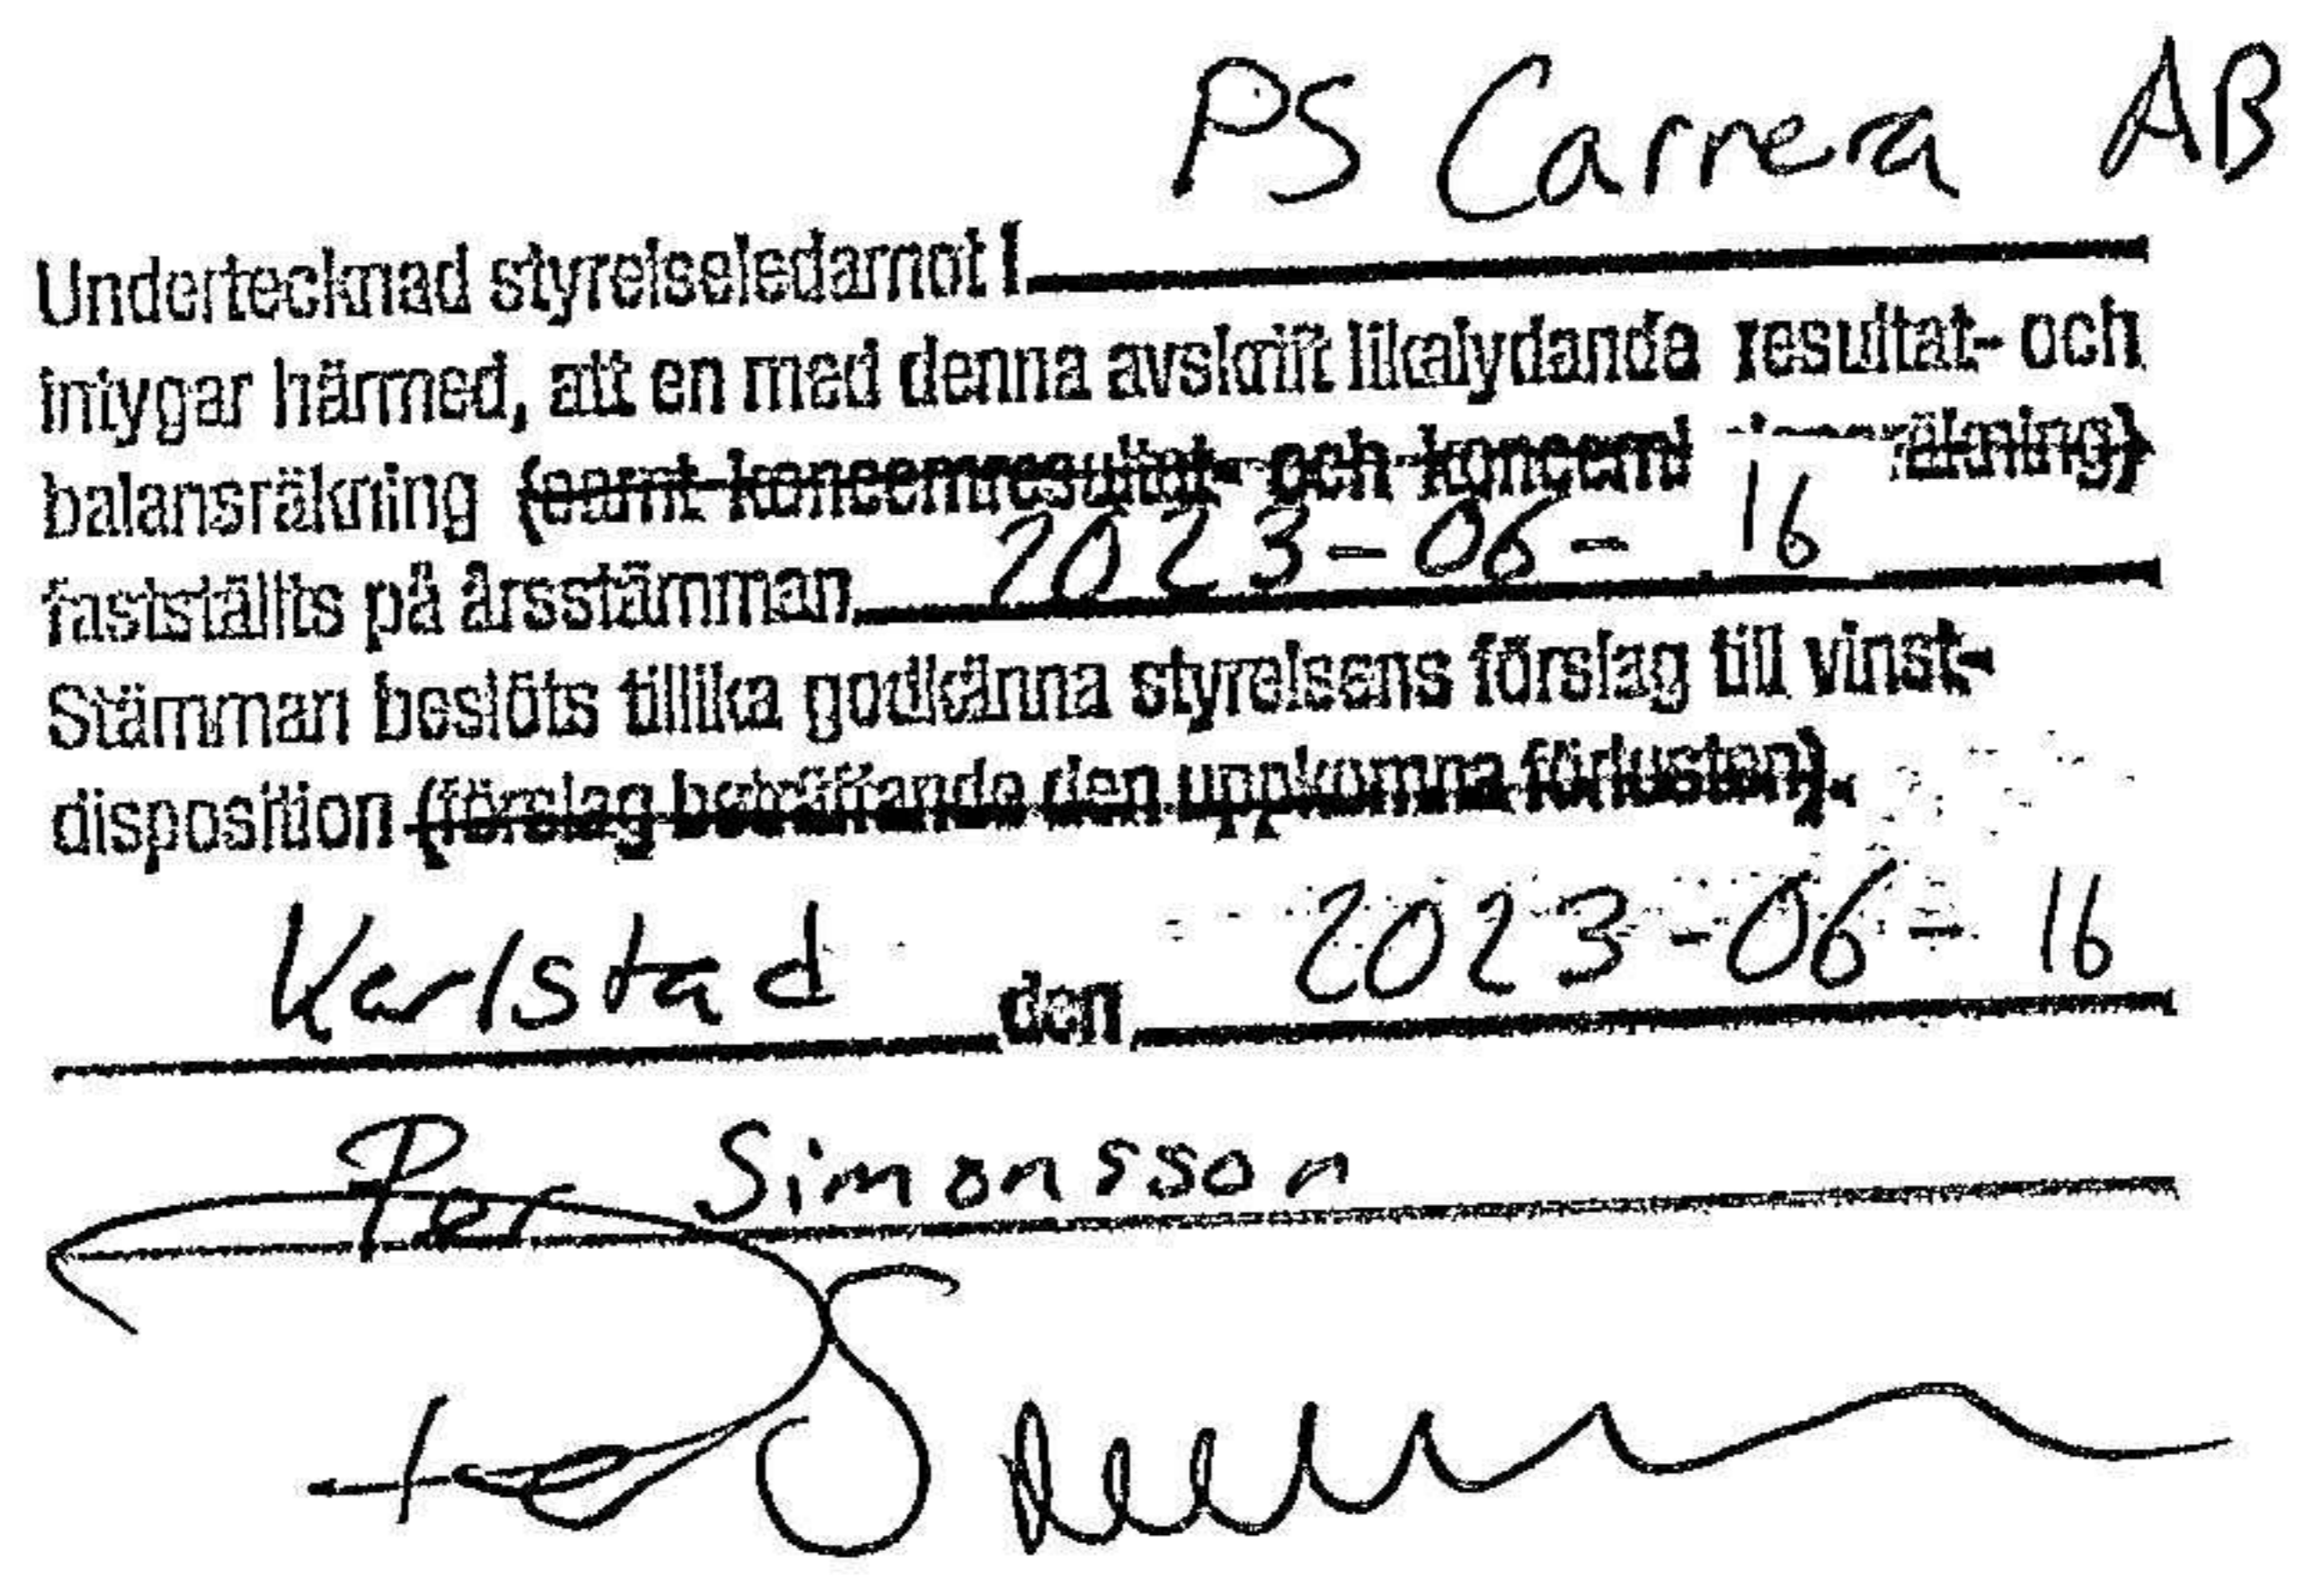 PS Carrera AB
Undertecknad styrelseledamot i
intygar härmed, att en med denna avskrift likalydande resultat- och
balansräkning (samt koncernresultat- och koncernb räkning)
fastställts på årsstämman 2023-06-16
Stämman beslöts tillika godkänna styrelsens förslag till vinst-
disposition (förslag beträffande den uppkomna förlusten).
Karlstad den 2023-06-16
Per Simonsson